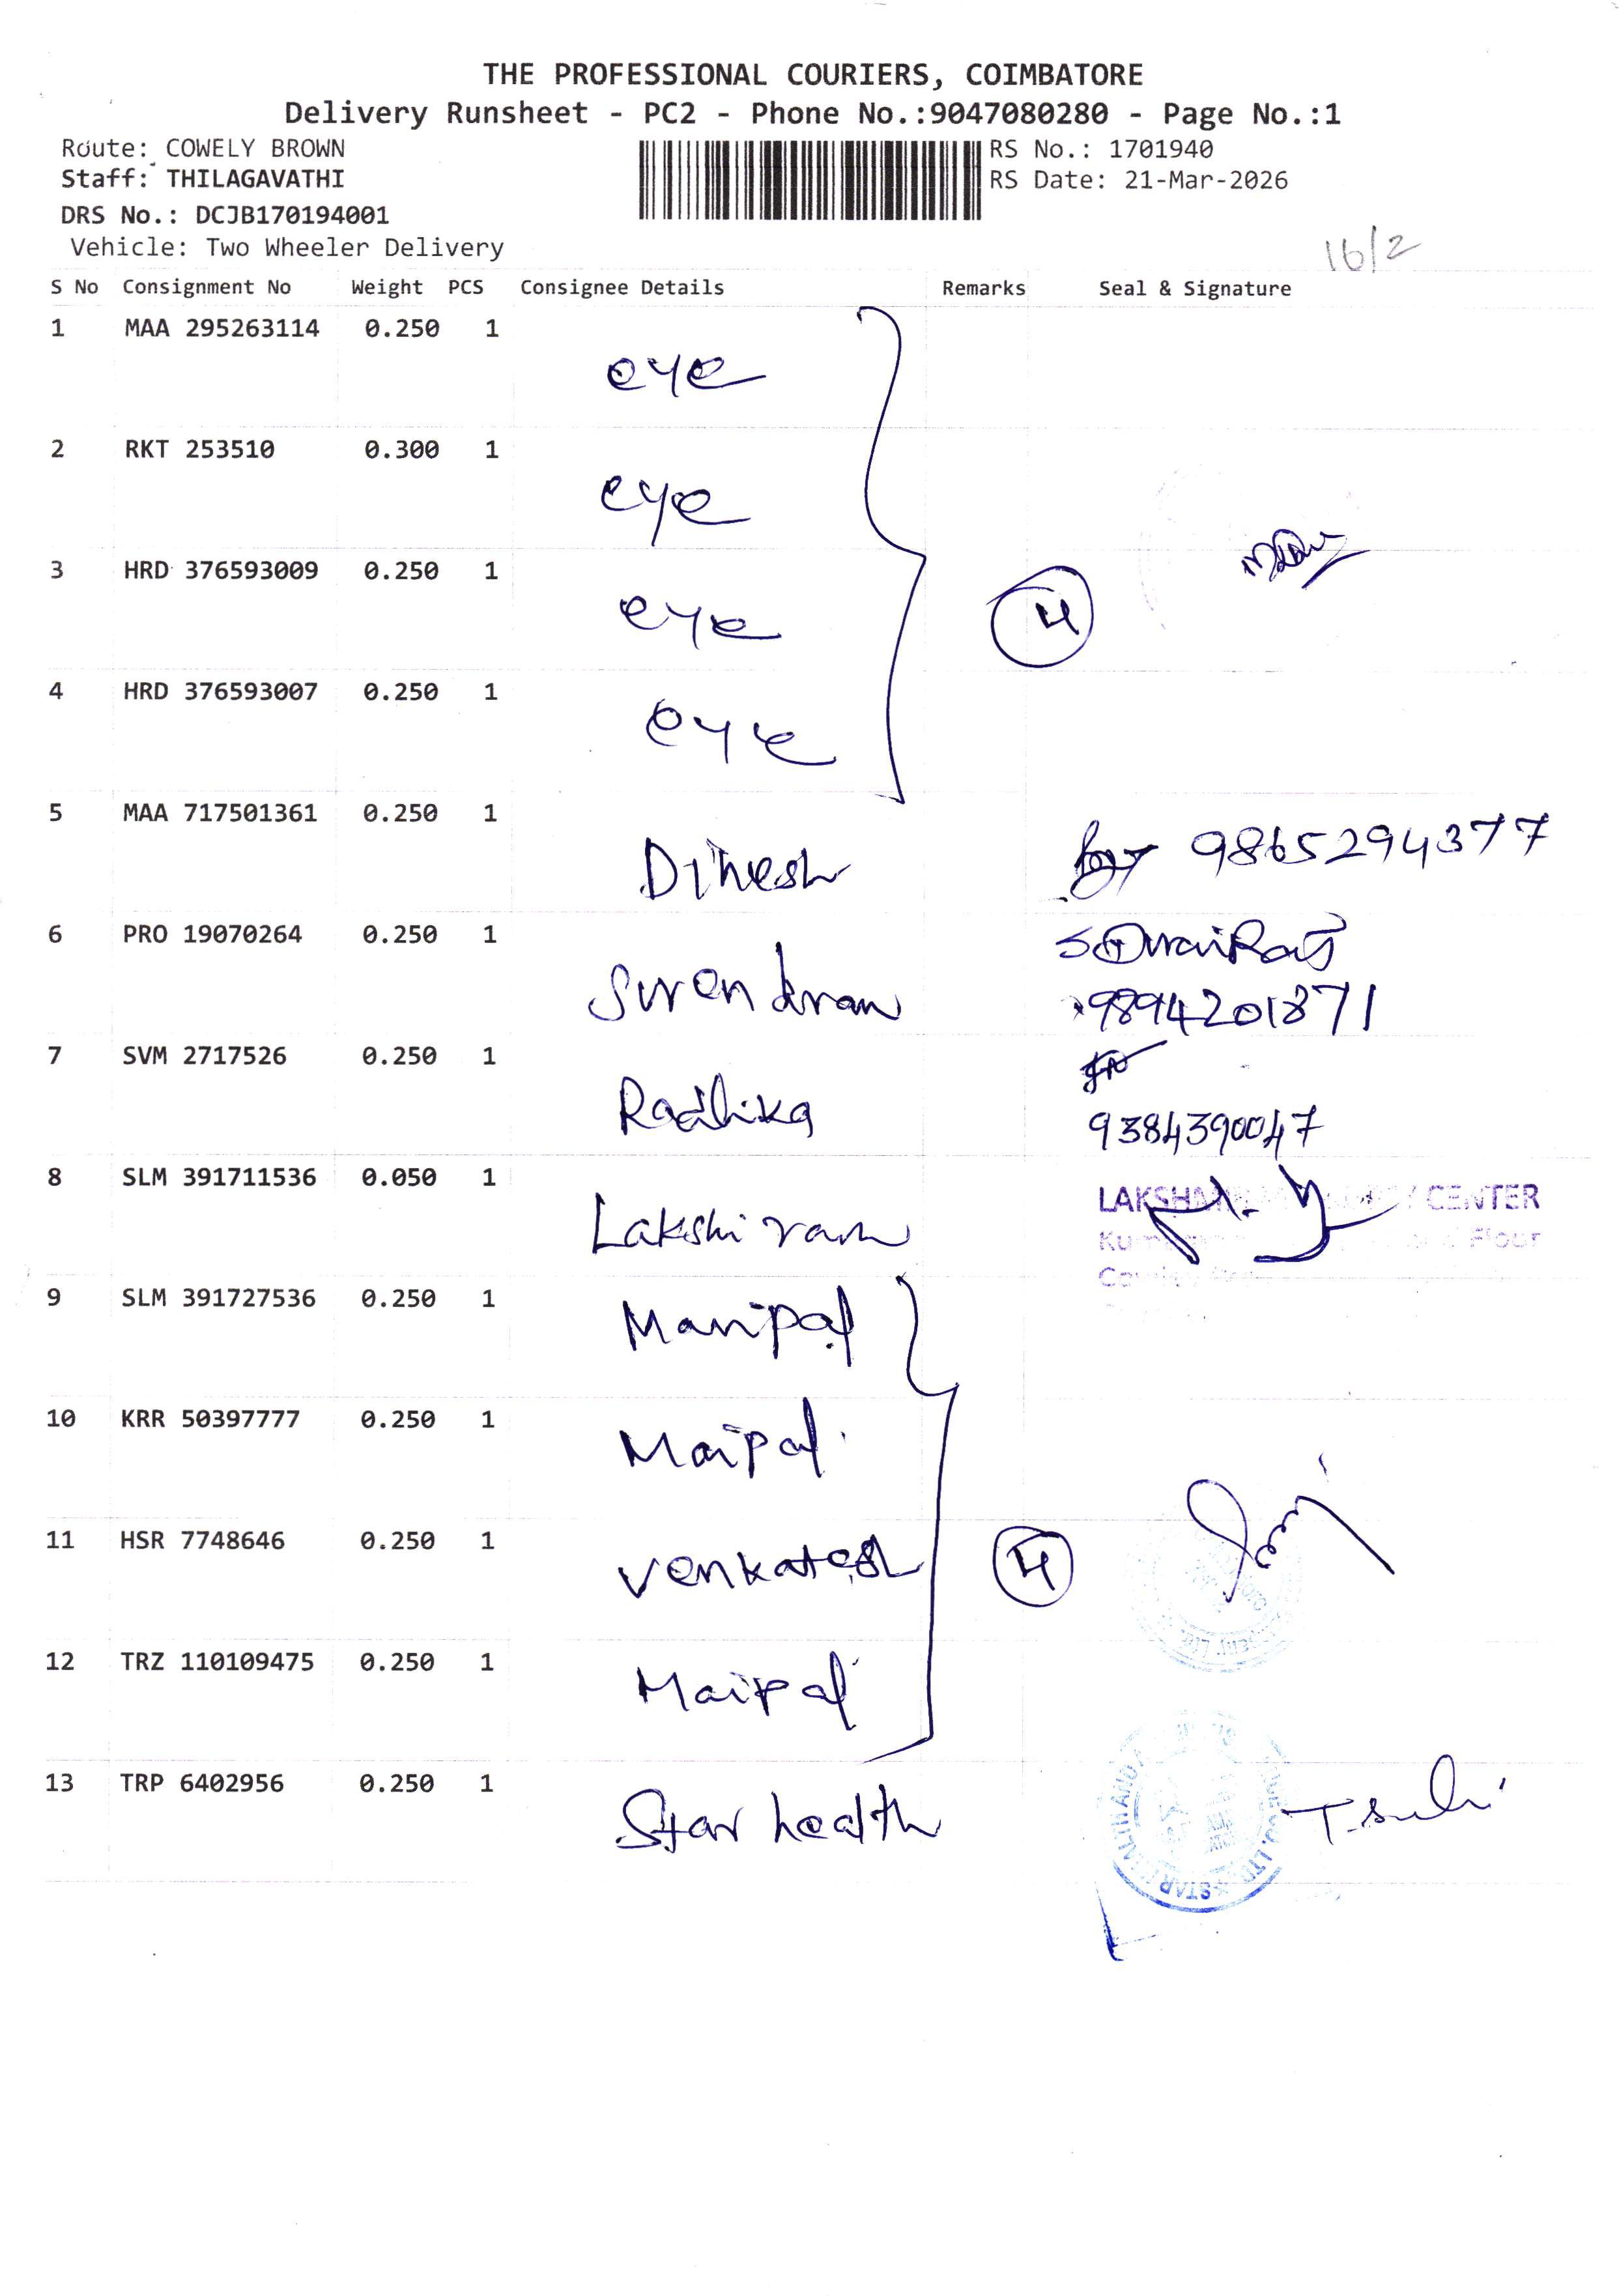 THE PROFESSIONAL COURIERS, COIMBATORE
Delivery Runsheet - PC2 - Phone No.:9047080280 - Page No.:1
Route: COWELY BROWN
RS No.: 1701940
Staff: THILAGAVATHI
RS Date: 21-Mar-2026
DRS No.: DCJB170194001
Vehicle: Two Wheeler Delivery
16/2
S No Consignment No Weight PCS Consignee Details Remarks Seal & Signature
1 MAA 295263114 0.250 1
eye
2 RKT 253510 0.300 1
eye
3 HRD 376593009 0.250 1
eye
4
4 HRD 376593007 0.250 1
eye
5 MAA 717501361 0.250 1
Dinesh 9865294377
6 PRO 19070264 0.250 1
Surendran
9894201871
7 SVM 2717526 0.250 1
Radhika
9384390047
8 SLM 391711536 0.050 1
Lakshi ram
CENTER
Flour
9 SLM 391727536 0.250 1
Manipal
10 KRR 50397777 0.250 1
Maipal
11 HSR 7748646 0.250 1
Venkatesh 4
12 TRZ 110109475 0.250 1
Maipal
13 TRP 6402956 0.250 1
Star health
STAR